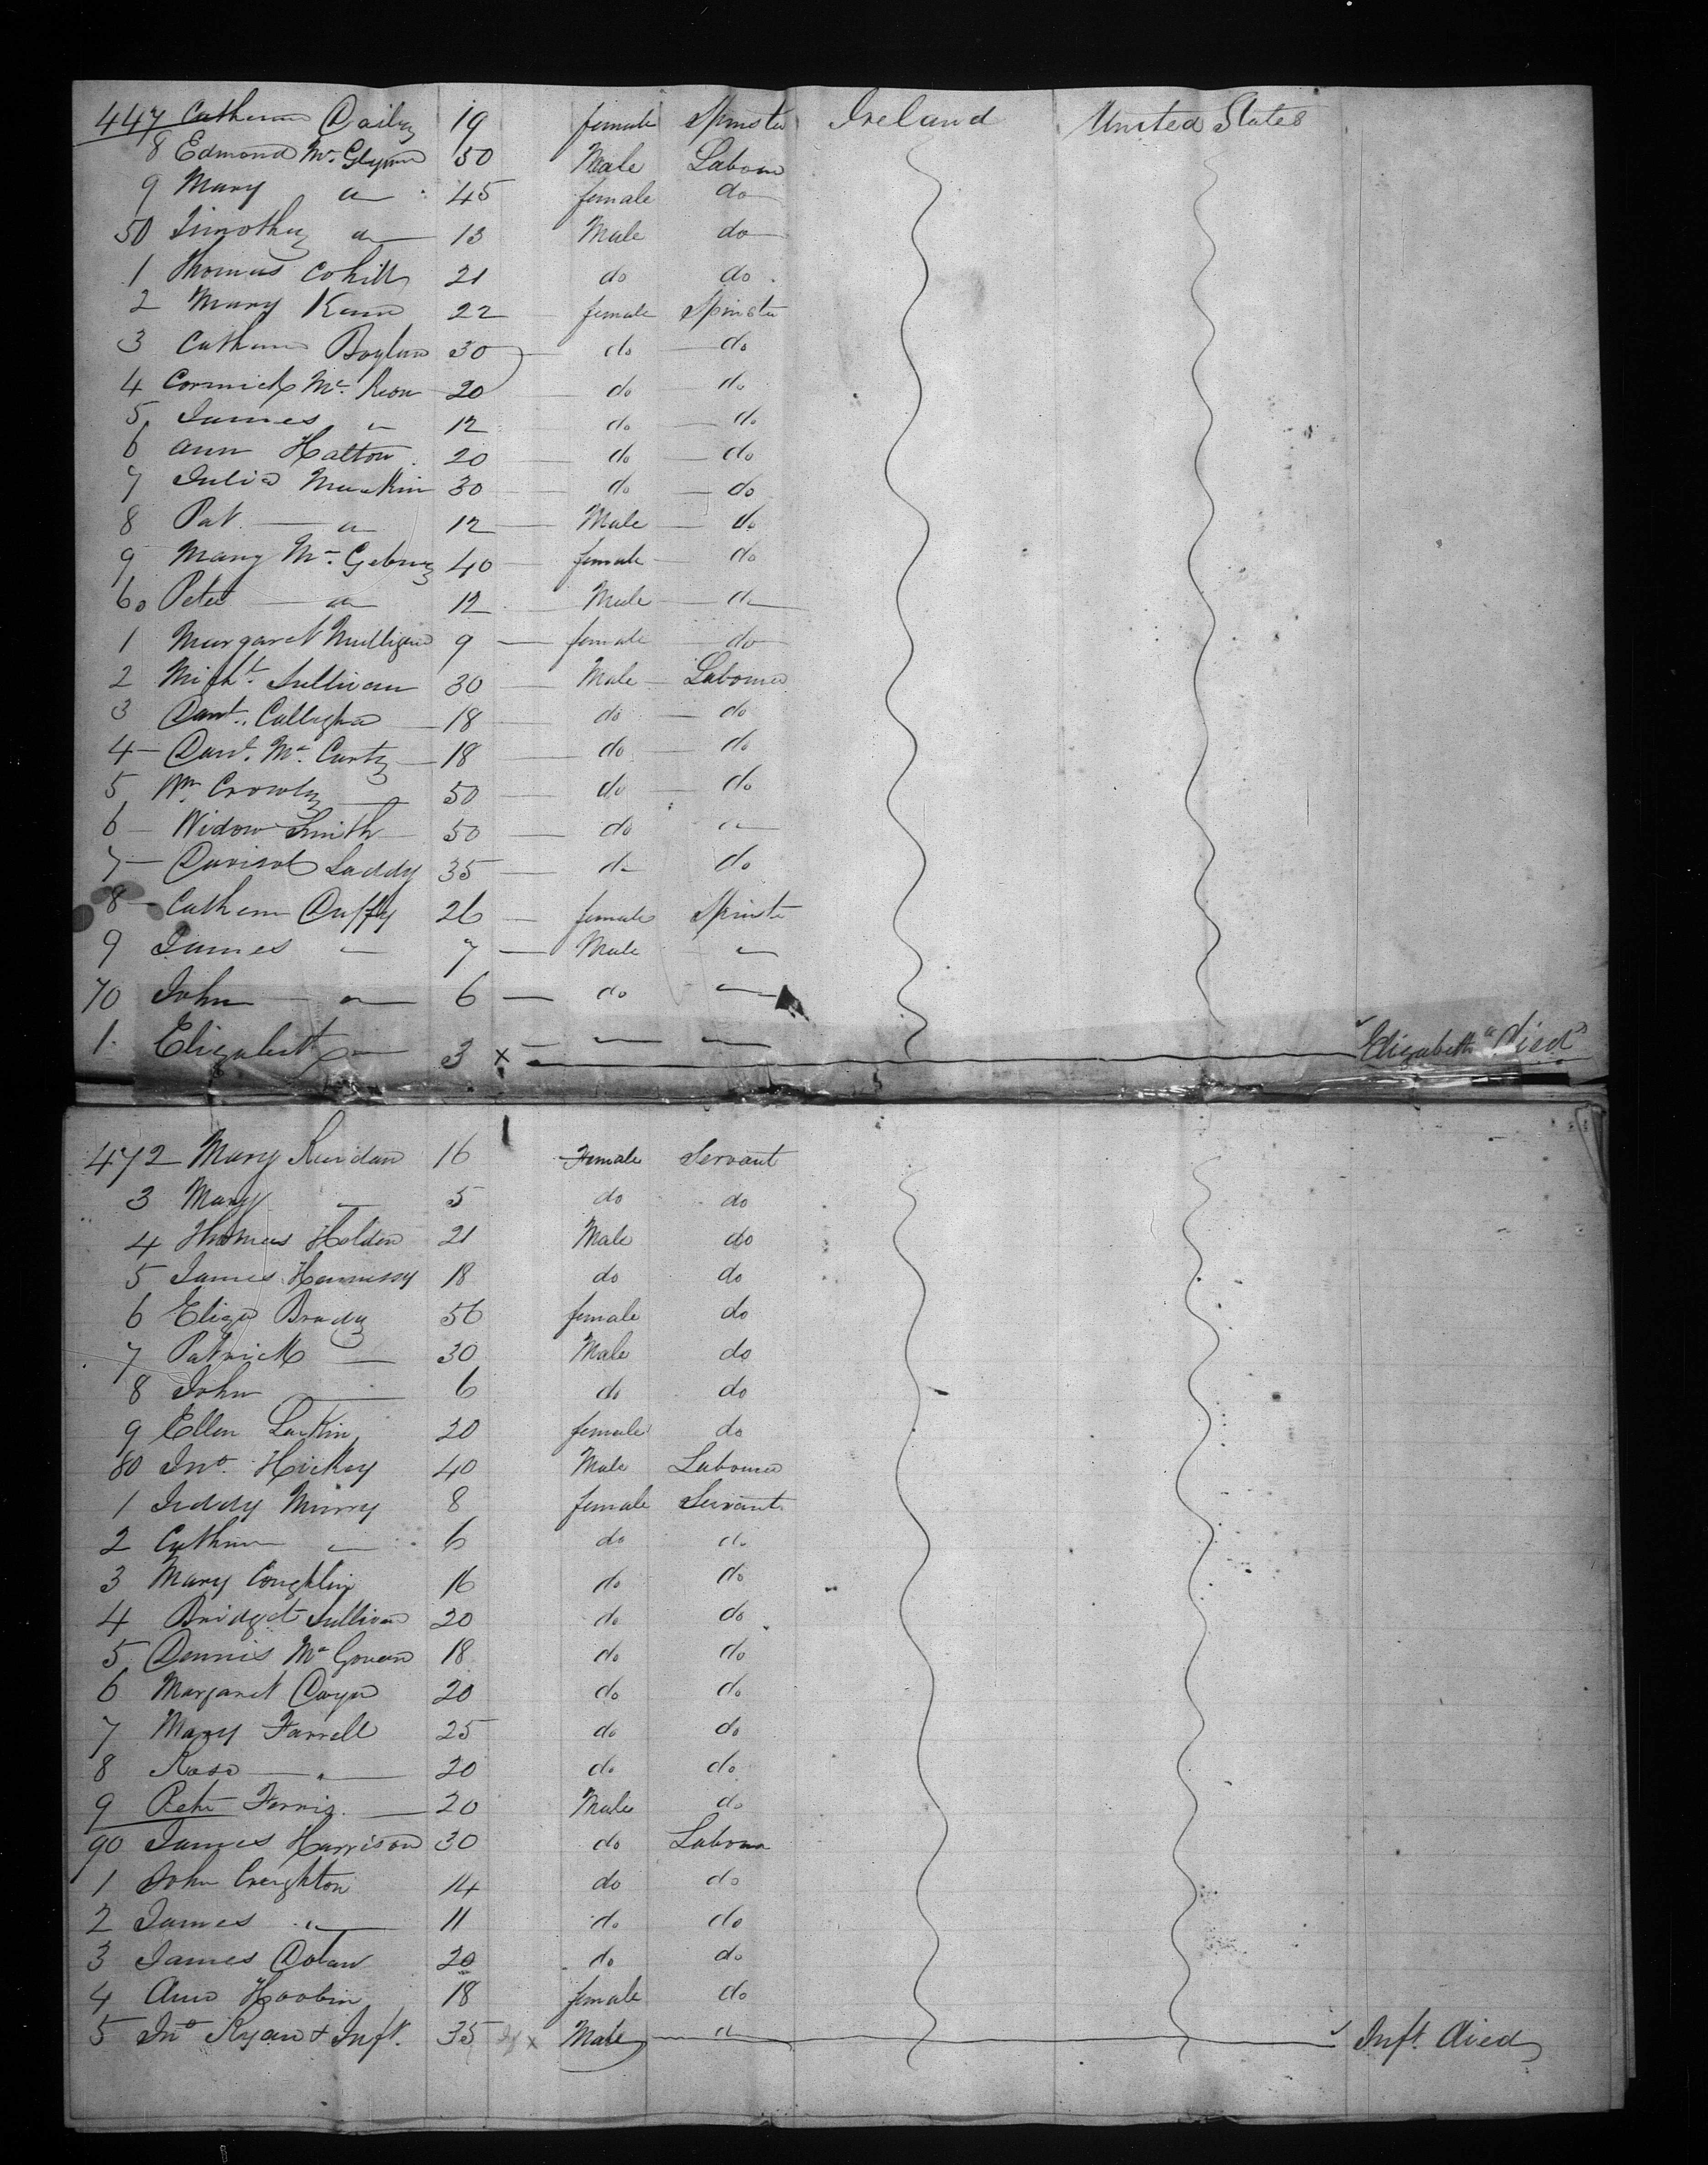 447 Catherine Dailey 19 female Spinster Ireland United States
8 Edmond Mc Glynn 50 Male Labour
9 Mary " 45 female do
50 Timothy " 13 Male do
1 Thomas Cohill 21 do do
2 Mary Kann 22 female Spinster
3 Catherine Boylan 30 do do
4 Cormick Mc Keon 20 do do
5 James " 12 do do
6 Ann Halton 20 do do
7 Julia 30 do do
8 Pat " 12 Male do
9 Mary 40 female do
60 Peter " 12 Male "
1 Margaret Mulligan 9 female do
2 Mich.l Sullivan 30 Male Labourer
3 Danl. Callaghan 18 do do
4 Danl. Mc Carty 18 do do
5 Wm Crowley 50 do do
6 Widow Smith 50 do "
7 Laddy 35 do do
8 Cathern Duffy 26 female Spinster
9 James " 7 Male "
70 John " 6 do "
1 Elizabeth " 3 x " " Elizabeth " Died
472 Mary 16 Female Servant
3 Mary " 5 do do
4 Thomas Holden 21 Male do
5 James Hennessy 18 do do
6 Eliza Brady 56 female do
7 Patrick — 30 Male do
8 John — 6 do do
9 Ellen Larkin 20 female do
80 Jno. Hickey 40 Male Labourer
1 Murry 8 female Servant
2 Cathrine " 6 do do
3 Mary Coughlin 16 do do
4 Bridget Sullivan 20 do do
5 Dennis Mc Govern 18 do do
6 Margaret 20 do do
7 Mary Farrell 25 do do
8 Rose " 20 do do
9 Peter Ferris 20 Male do
90 James Harrison 30 do Labour
1 John Creighton 14 do do
2 James " 11 do do
3 James Dolan 20 do do
4 Ann Hoobin 18 female do
5 Jno Ryan & Inft. 35 x Male " Inft. Died